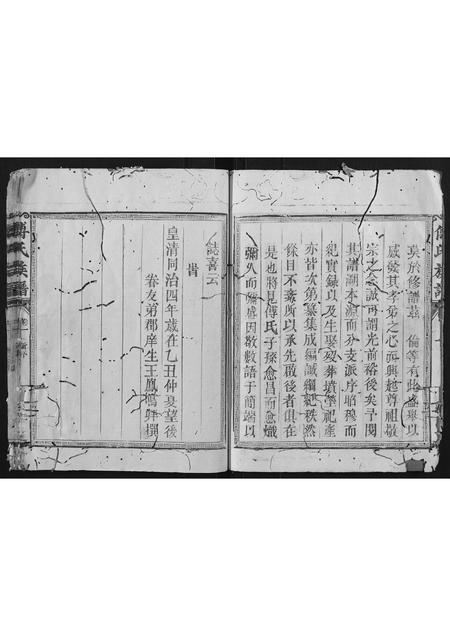 莫於修譜 倫等有此盛舉以
感發其孝弟之心而興起尊祖敬
宗之念誠可謂光前裕後矣予閱
其譜溯本源而分支派序昭穆而
紀實錄以及生娶歿葬墳塋祀產
亦皆次第纂集成編誠綱紀秩然
條目不紊所以承先啟後者俱在
是也將見傅氏子孫愈昌而愈熾
彌久而彌盛因敬數語于簡端以
誌喜云
皇清同治四年歲在乙丑仲夏望後
春友弟郡庠生王鳳鳴拜撰
傅氏族譜